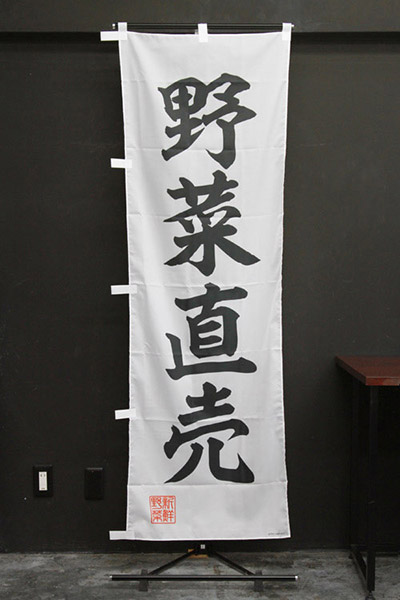 野菜直売
新鮮
野菜